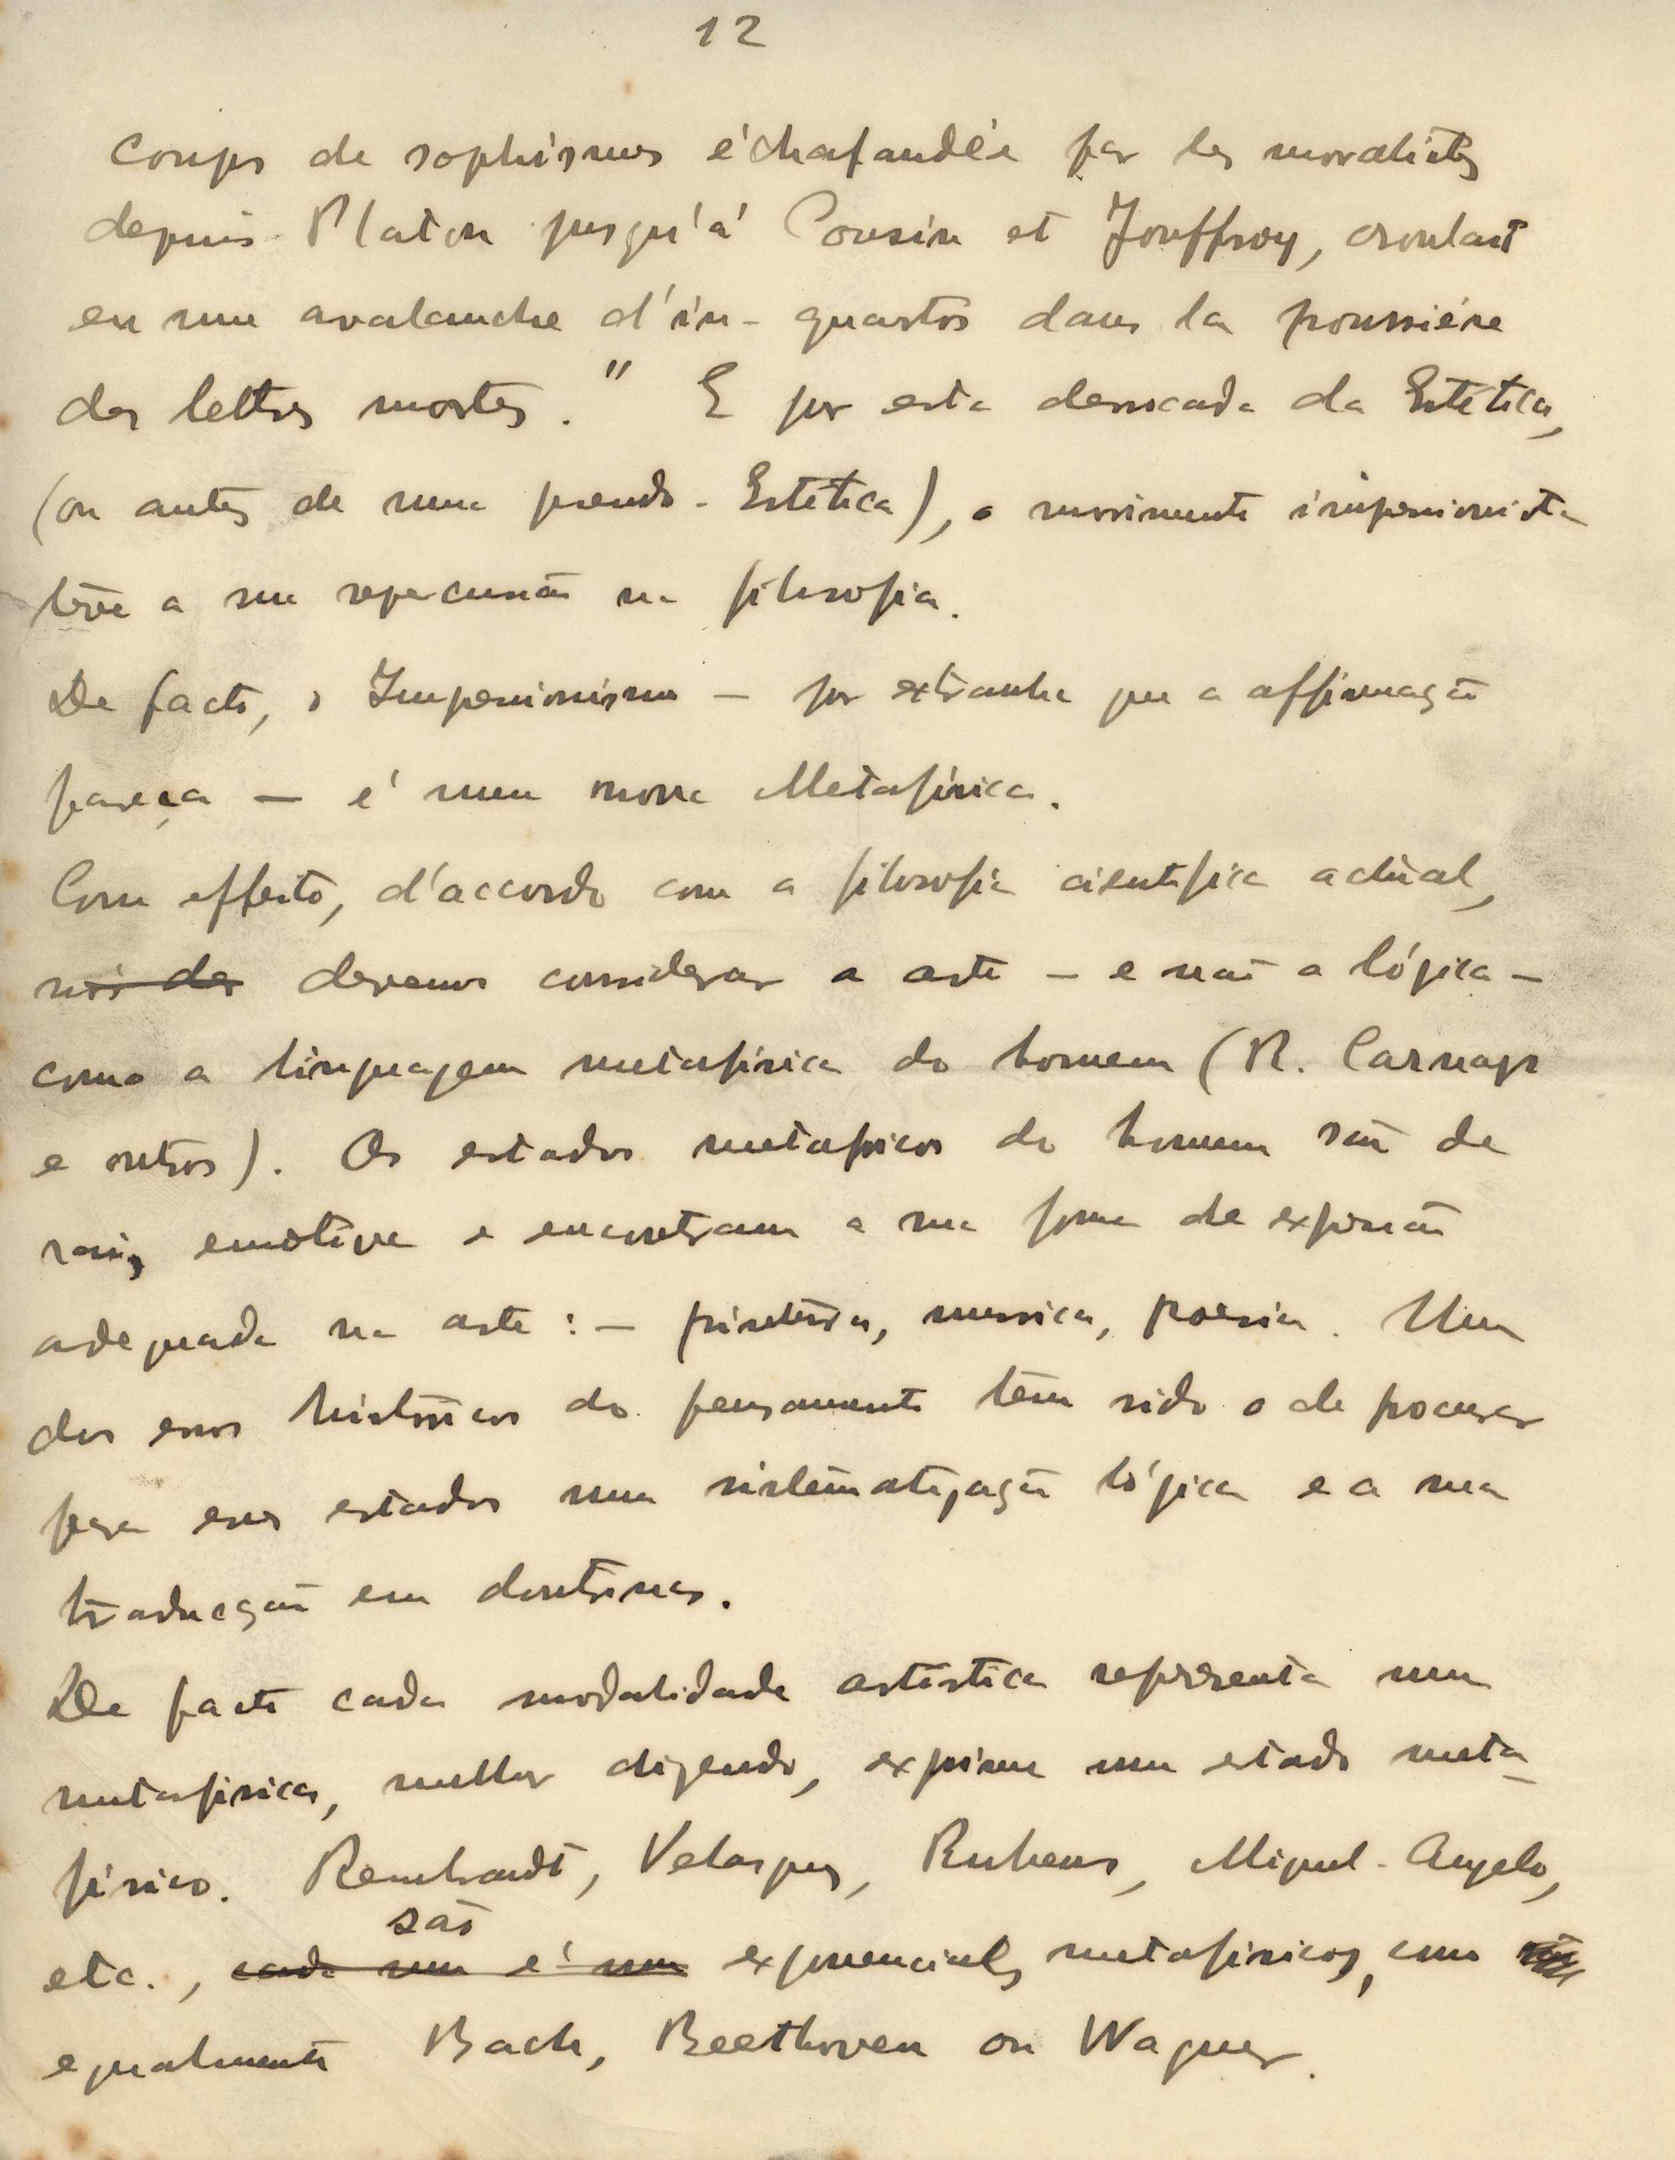 12
coups de sophismes échafaudée par les moralistes
depuis Platon jusqu'á Cousin et Jouffroy, croulait
en une avalanche d'in-quartos dans la poussiére
des lettres mortes." E por esta derrocada da Estética,
(ou antes de uma pseudo-Estética), o movimento impressionista
teve a sua repercussão na filosofia.
De facto, o Impressionismo — por extranha que a affirmação
pareça — é uma nova Metafísica.
Com effeito, d'accordo com a filosofia cientifica actual,
nós de devemos considerar a arte — e não a lógica —
como a linguagem metafísica do homem (R. Carnap
e outros). Os estados metafísicos do homem são de
raiz emotiva e encontram a sua forma de expressão
adequada na arte: — pintura, mussica, poesia. Um
dos erros históricos do pensamento têm sido o de procurar
para esses estados uma sistematização lógica e a sua
traducção em doutrinas.
De facto cada modalidade artística representa uma
metafísica, melhor dizendo, exprime um estado meta-
físico. Rembrandt, Velasquez, Rubens, Miguel-Angelo,
são
etc., cada um é um exponenciais metafísicos, como
egualmente Bach, Beethoven ou Wagner.